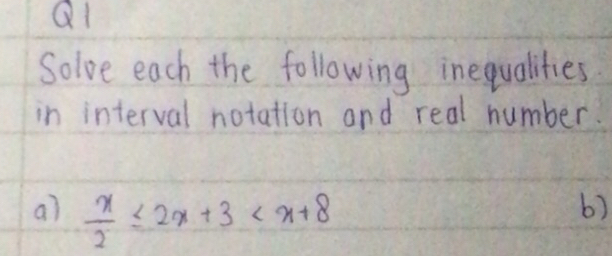 Q1
Solve each the following inequalities.
in interval notation and real number.
a) x/2 ≤ 2x + 3 < x + 8
b)